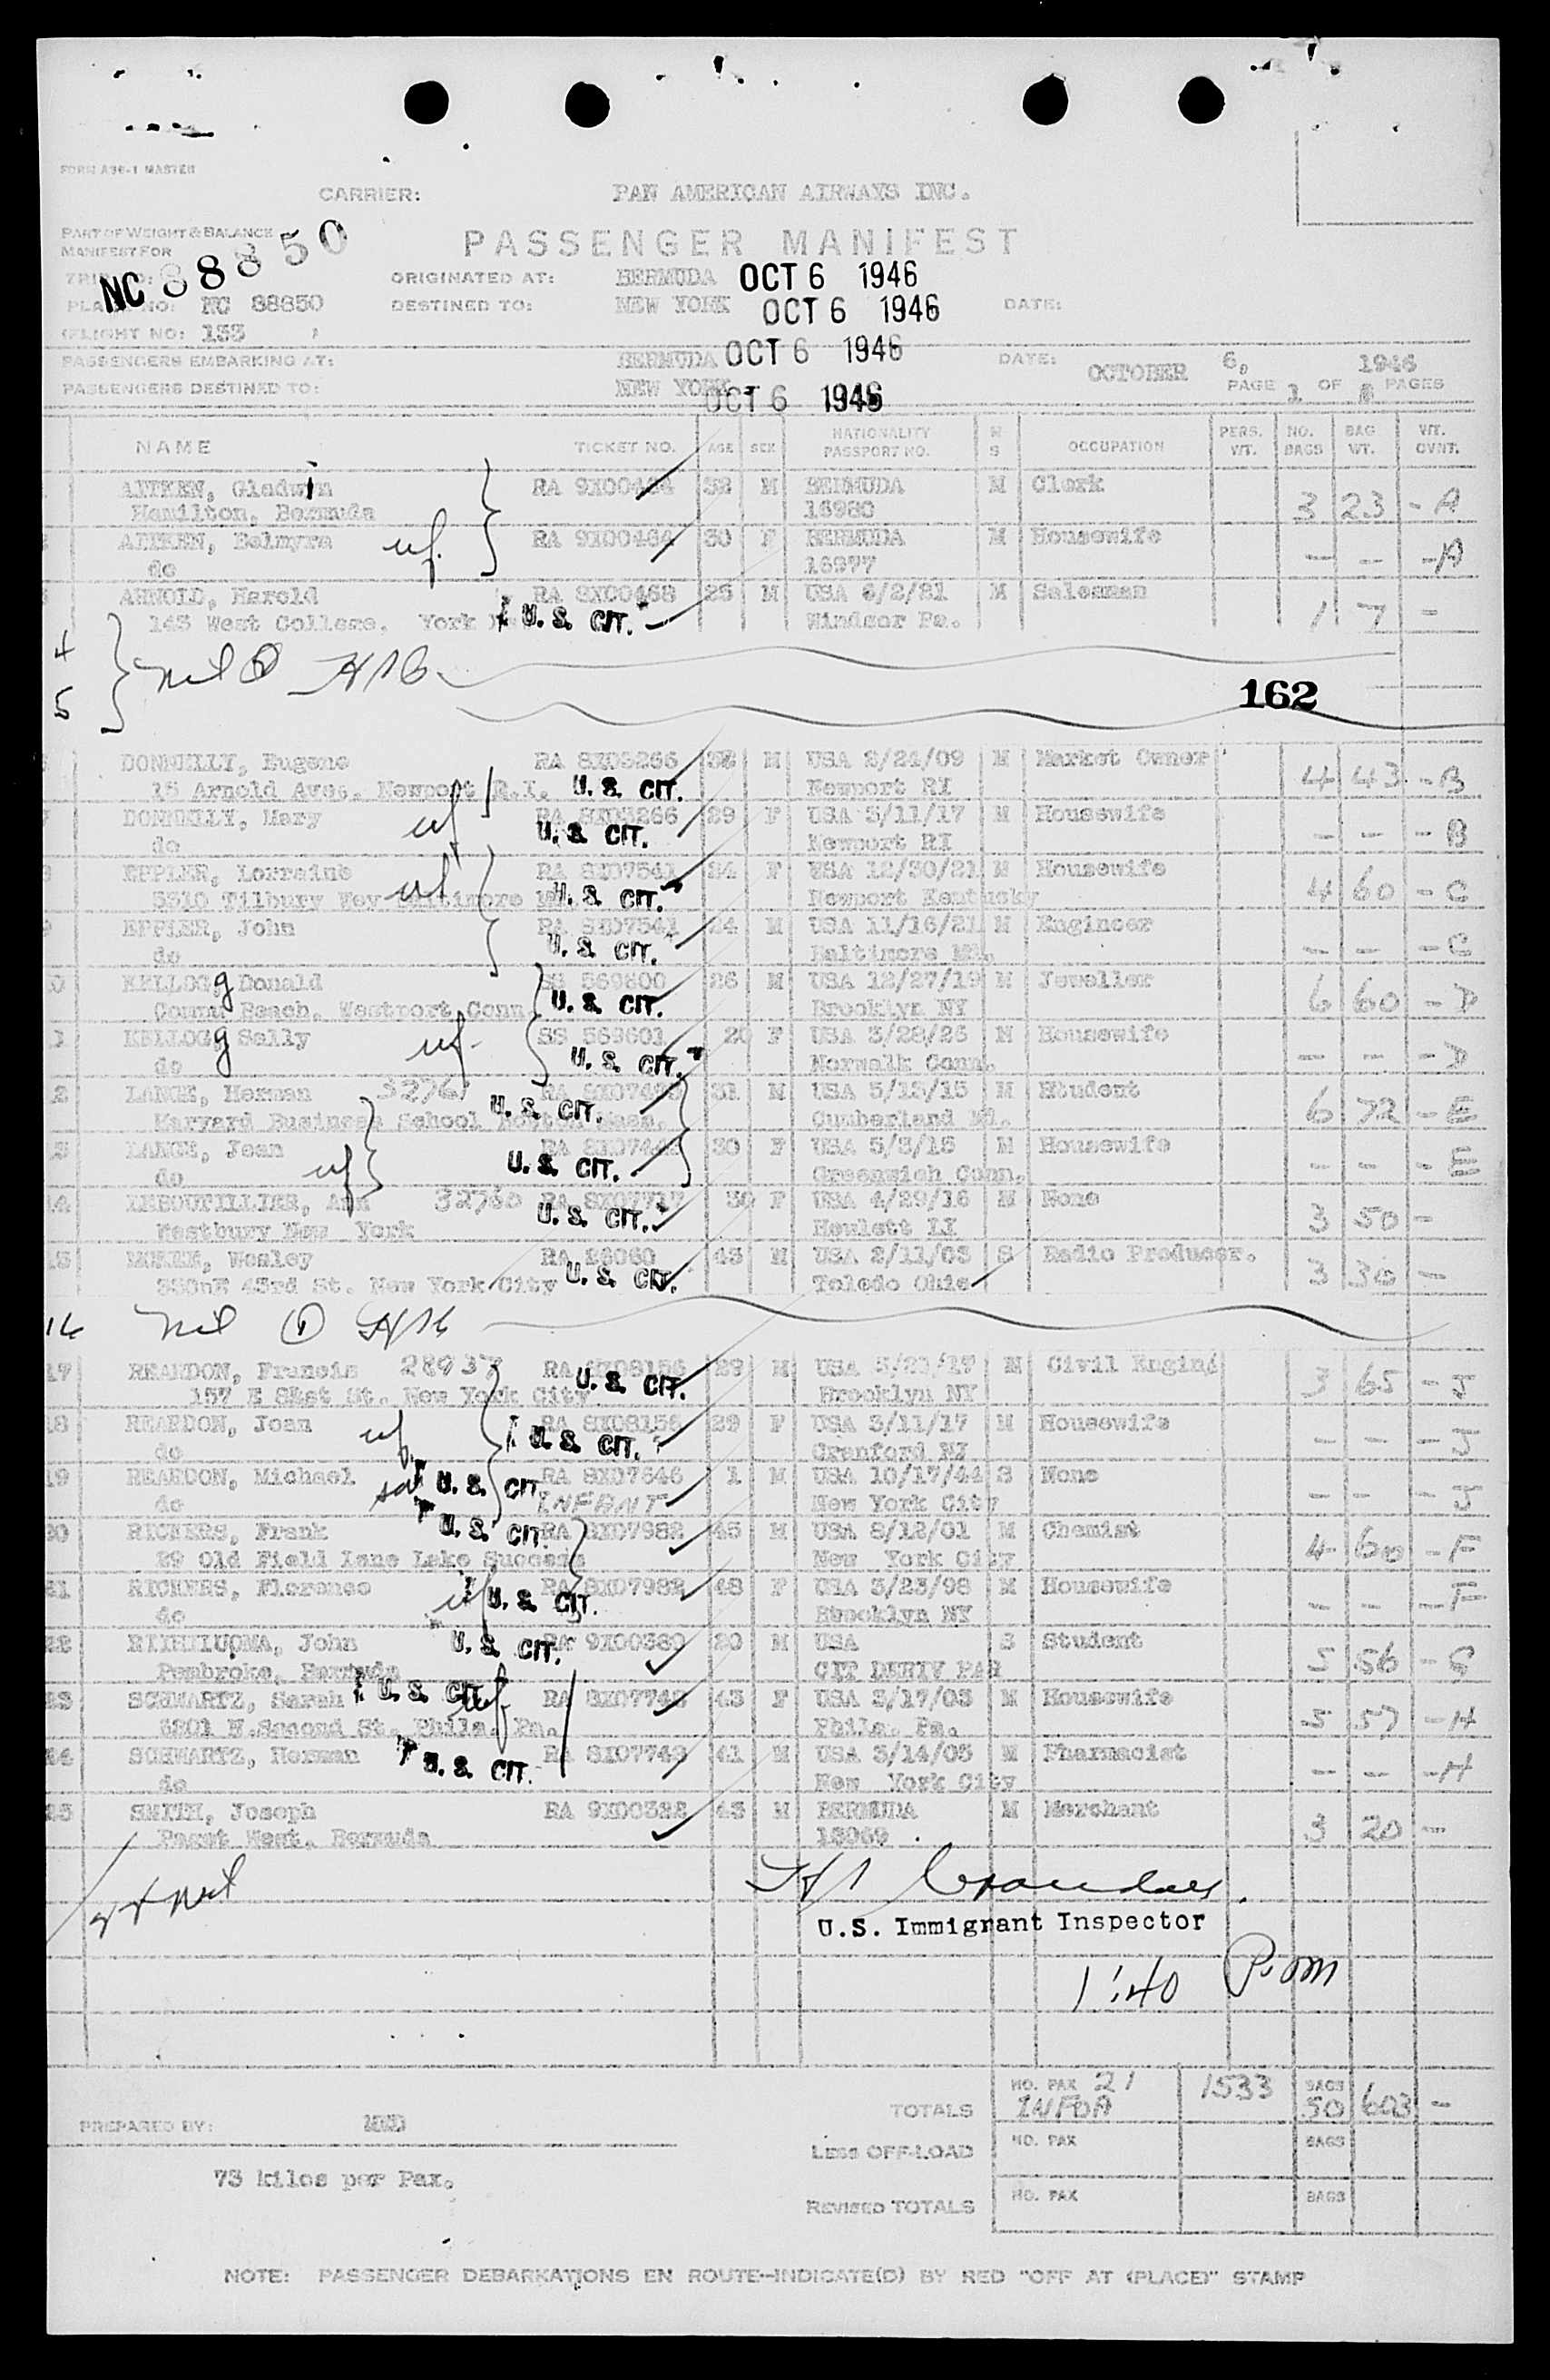 FORM A96-1 MASTER
CARRIER: PAN AMERICAN AIRWAYS INC.
PART OF WEIGHT & BALANCE
MANIFEST FOR
PASSENGER MANIFEST
NC 88850
ORIGINATED AT: BERMUDA OCT 6 1946
PLANE NO: NC 88850 DESTINED TO: NEW YORK OCT 6 1946 DATE:
FLIGHT NO: 133
PASSENGERS EMBARKING AT: BERMUDA OCT 6 1946 DATE: OCTOBER 6, 1946
PASSENGERS DESTINED TO: NEW YORK OCT 6 1946 PAGE 1 OF PAGES
NAME TICKET NO. AGE SEX NATIONALITY PASSPORT NO. M S OCCUPATION PERS. WT. NO. BAGS BAG WT. WT. OVNT.
AITKEN, Gladwin RA 9X00464 32 M BERMUDA M Clerk
Hamilton, Bermuda 16980 3 23 - A
AITKEN, Belmyra wf. RA 9X00464 30 F BERMUDA M Housewife
do 16977 — — - A
ARNOLD, Harold RA 8X00468 25 M USA M Salesman
145 West College, York U. S. CIT. Windsor Pa. 1 7 -
4
5 Nil
162
DONNELLY, Eugene RA 8X03266 M USA 2/24/09 M Market Owner
15 Arnold Ave., Newport R.I. U. S. CIT. Newport RI 4 43 - B
DONNELLY, Mary wf RA 8X03266 29 F USA 5/11/17 M Housewife
do U. S. CIT. Newport RI — — - B
EPPLER, Lorraine wf RA 8X07541 24 F USA 12/30/21 M Housewife
5510 Tilbury Way Baltimore U. S. CIT. Newport Kentucky 4 60 - C
EPPLER, John RA 8X07541 24 M USA 11/16/21 M Engineer
do U. S. CIT. Baltimore Md. — — - C
KELLOGG Donald SS 569600 26 M USA 12/27/19 M Jeweller
Compo Beach, Westport Conn U. S. CIT. Brooklyn NY 6 60 - D
KELLOGG Sally wf. SS 569601 20 F USA 3/28/26 M Housewife
do U. S. CIT. Norwalk Conn. — — - D
LANGE, Herman 3276 31 M USA 5/15/15 M Student
Harvard Business School Boston Mass. U. S. CIT. Cumberland Md. 6 72 - E
LANGE, Jean 30 F USA 5/3/16 M Housewife
do wf U. S. CIT. Greenwich Conn. — — - E
LEBOUTILLIER, Ann 32760 RA 8X07717 30 F USA 4/29/16 M None
Westbury New York U. S. CIT. Hewlett LI 3 50 -
Wesley 43 M USA 2/11/03 S Radio Producer.
43rd St. New York City U. S. CIT. Toledo Ohio 3 30 -
16 Nil
17 REARDON, Francis 28937 RA 8X08156 29 M USA M Civil Engine
157 E St. New York City U. S. CIT. Brooklyn NY 3 65 - J
18 REARDON, Joan wf. RA 8X08156 29 F USA 3/11/17 M Housewife
do U. S. CIT. Cranford NJ — — - J
19 REARDON, Michael RA 8X07646 1 M USA 10/17/44 S None
do son U. S. CIT. INFANT New York City — — - J
20 RICKERS, Frank U. S. CIT. RA 8X07982 45 M USA 8/12/01 M Chemist
29 Old Field Lane Lake Success New York City 4 60 - F
21 RICKERS, Florence wf U. S. CIT. RA 8X07982 48 F USA 3/23/98 M Housewife
do Brooklyn NY — — - F
22 John U. S. CIT. RA 9X00380 20 M USA S Student
Pembroke, Bermuda CIT DERIV PAR 5 56 - G
23 SCHWARTZ, Sarah U. S. CIT. wf RA 8X07749 43 F USA 3/17/03 M Housewife
N. Second St. Phila. Pa. Phila. Pa. 5 57 - H
24 SCHWARTZ, Herman U. S. CIT. RA 8X07749 41 M USA 3/14/05 M Pharmacist
do New York City — — - H
25 SMITH, Joseph RA 9X00322 43 M BERMUDA M Merchant
Paget West, Bermuda 13969 3 20 -
U.S. Immigrant Inspector
1:40 P.m
TOTALS NO. PAX 21 1533 BAGS 50 603 -
PREPARED BY:
LESS OFF-LOAD NO. PAX BAGS
73 kilos per Pax.
REVISED TOTALS NO. PAX BAGS
NOTE: PASSENGER DEBARKATIONS EN ROUTE-INDICATE(D) BY RED "OFF AT (PLACE)" STAMP